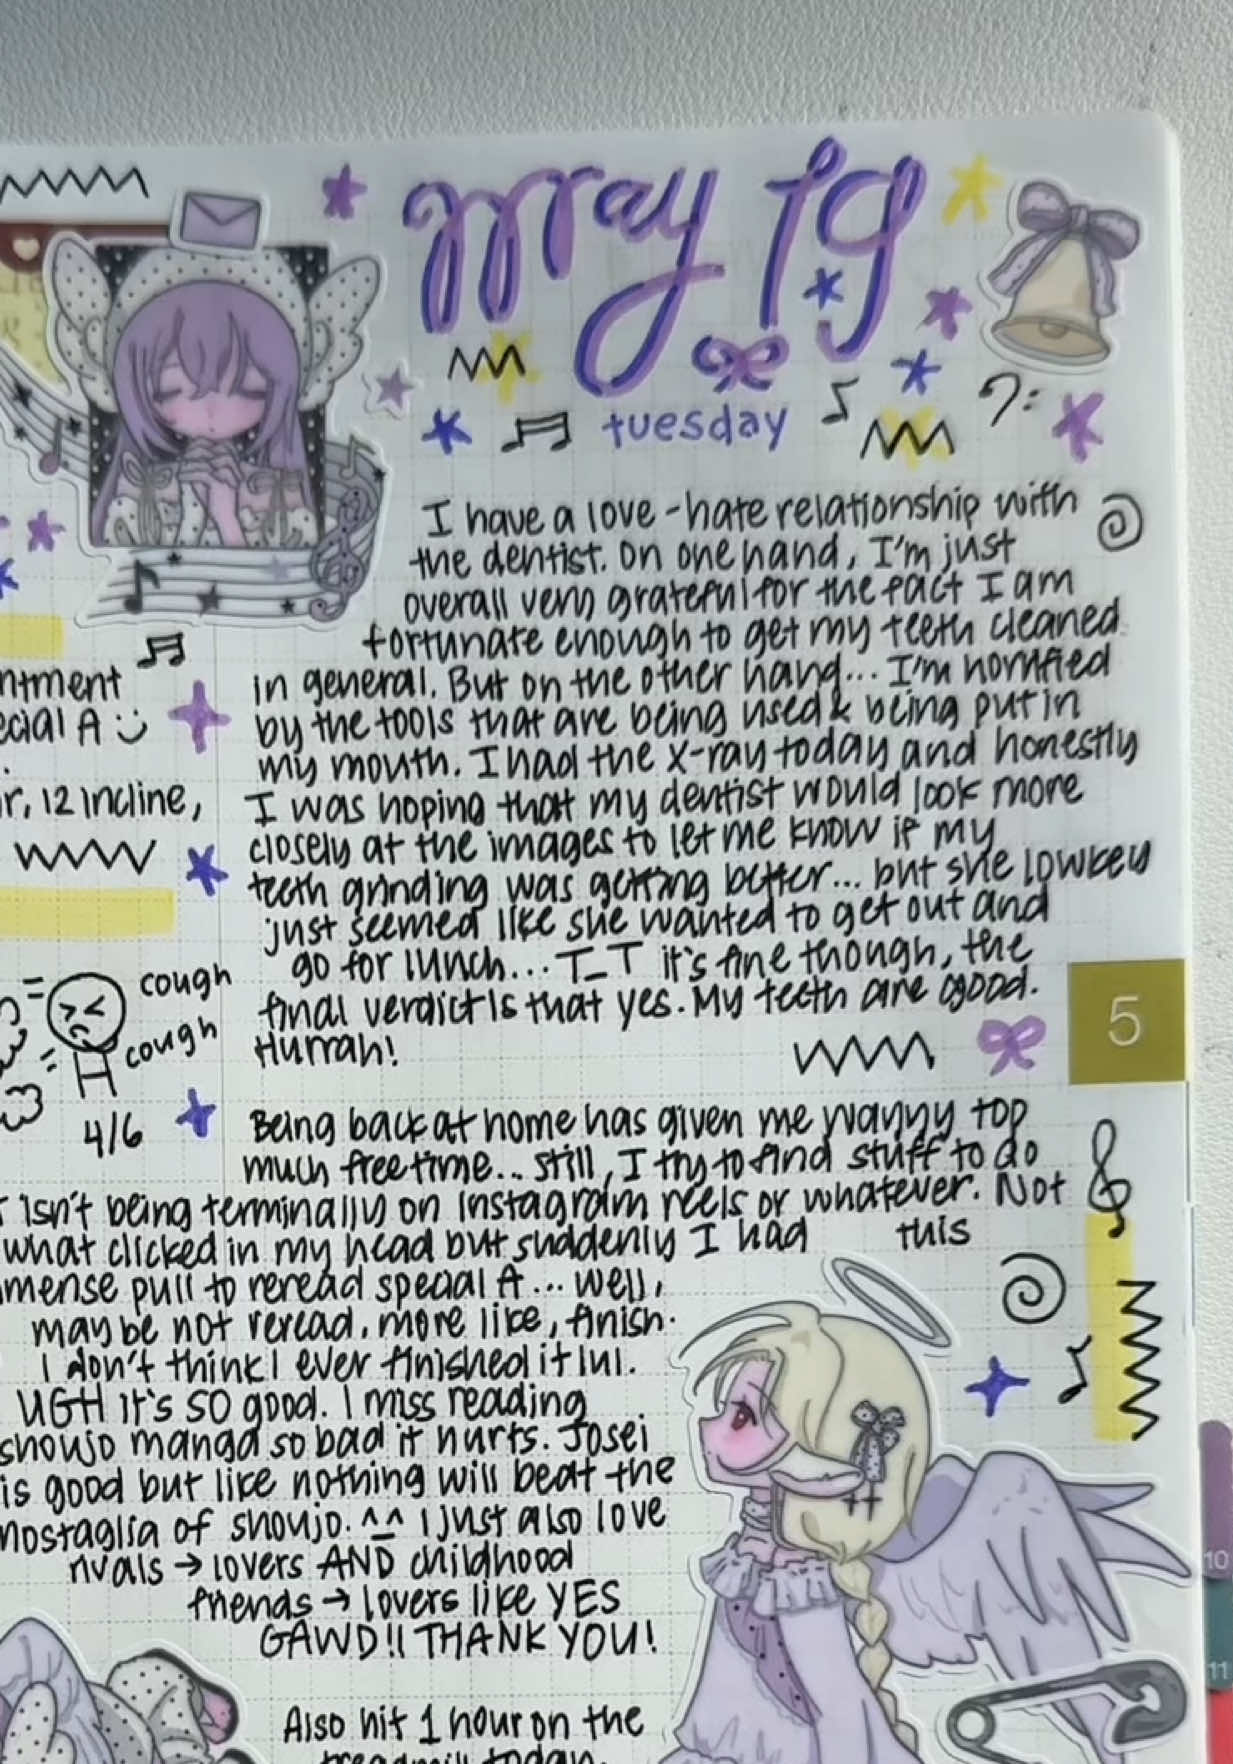 may 19
tuesday
I have a love-hate relationship with
the dentist. On one hand, I'm just
overall very grateful for the fact I am
fortunate enough to get my teeth cleaned
in general. But on the other hand... I'm horrified
by the tools that are being used & being put in
my mouth. I had the X-ray today and honestly
I was hoping that my dentist would look more
closely at the images to let me know if my
teeth grinding was getting better... but she lowkey
just seemed like she wanted to get out and
go for lunch... T_T it's fine though, the
final verdict is that yes. My teeth are good.
Hurrah!
5
Being back at home has given me wayyy top
much free time... still, I try to find stuff to do
isn't being terminally on instagram reels or whatever. Not
what clicked in my head but suddenly I had this
mense pull to reread special A... well,
maybe not reread, more like, finish.
I don't think I ever finished it lul.
UGH it's SO good. I miss reading
shoujo manga so bad it hurts. Josei
is good but like nothing will beat the
nostaglia of shoujo. ^_^ I just also love
rivals → lovers AND childhood
friends → lovers like YES
GAWD!! THANK YOU!
Also hit 1 hour on the
treadmill today.
ntment
ecial A
r, 12 incline,
cough
cough
4/6
10
11